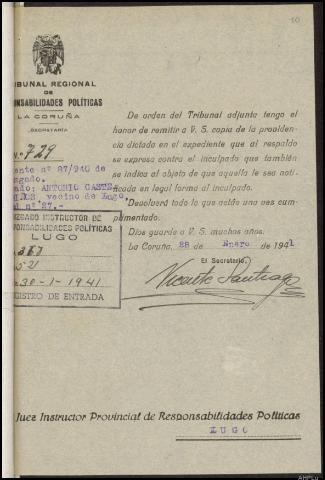 10
IBUNAL REGIONAL
DE
ONSABILIDADES POLÍTICAS
LA CORUÑA
SECRETARÍA
N.º 729
ente nº 87/940 de
ado: ANTONIO CASTE
vecino de Lugo,
nº 27.-
De orden del Tribunal adjunto tengo el
honor de remitir a V. S. copia de la providen
cia dictada en el expediente que al respaldo
se expresa contra el inculpado que también
se indica al objeto de que aquella le sea noti
ficada en legal forma al inculpado.
Devolverá todo lo que actúe una vez cum
plimentado.
Dios guarde a V. S. muchos años.
La Coruña, 28 de Enero de 1941
El Secretario,
Vicente Santiago
ZGADO INSTRUCTOR DE
PONSABILIDADES POLÍTICAS
LUGO
521
30-1-1941
GISTRO DE ENTRADA
Juez Instructor Provincial de Responsabilidades Políticas
LUGO
AHPLu